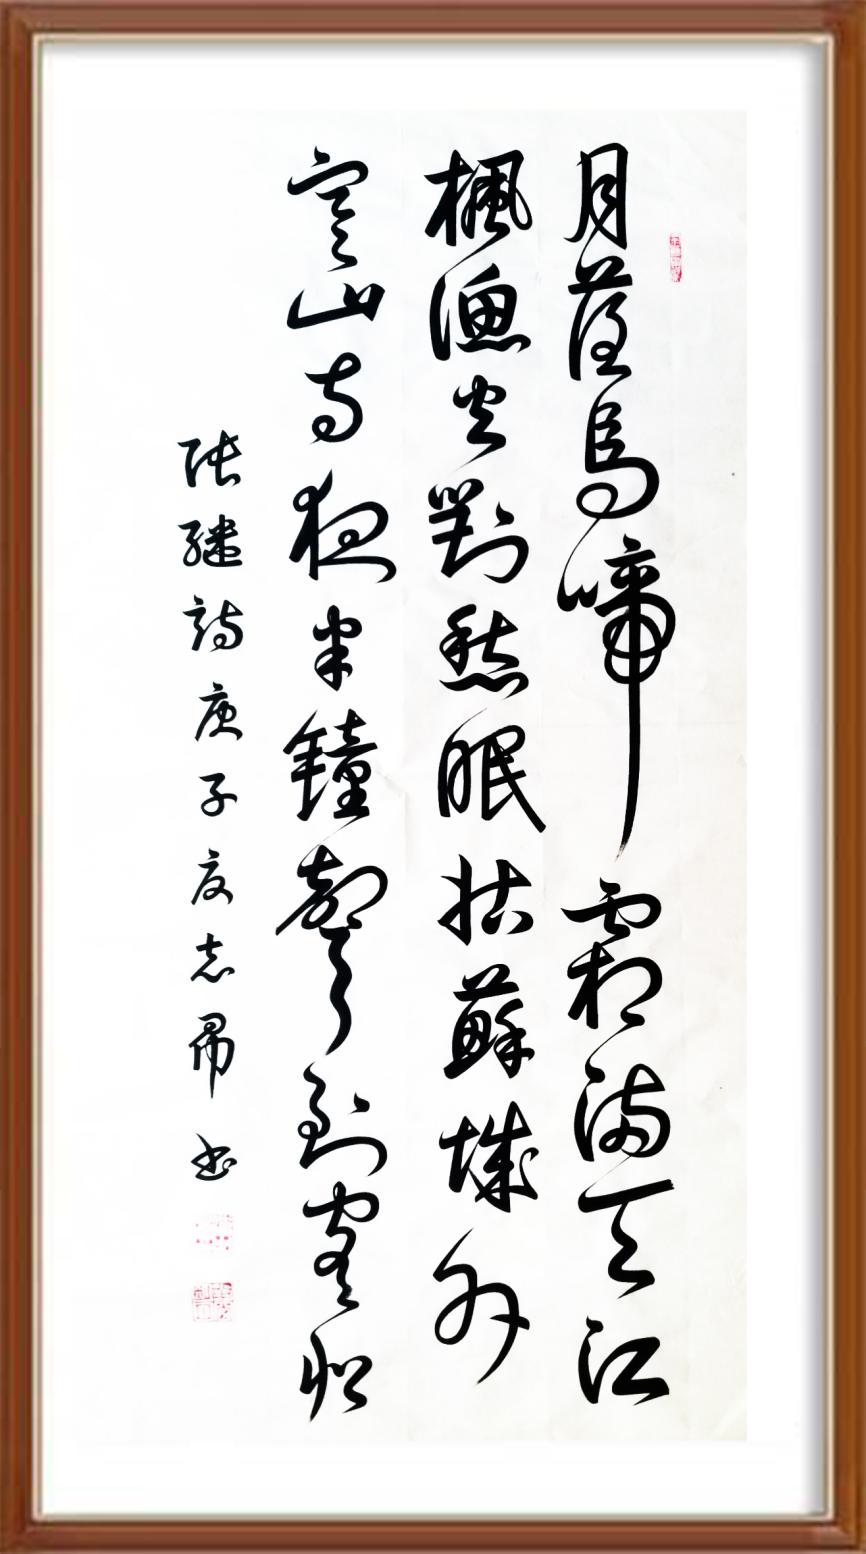 月落烏啼霜滿天江
楓漁火對愁眠姑蘇城外
寒山寺夜半鐘聲到客船
張繼詩庚子夏志书